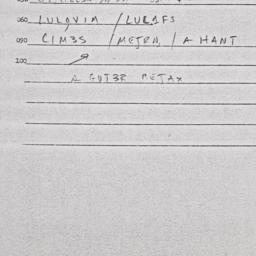 060 LULAVIA / LULAFS
090 CIM3S / METRN / A HANT
100
A GUT3R PETAX